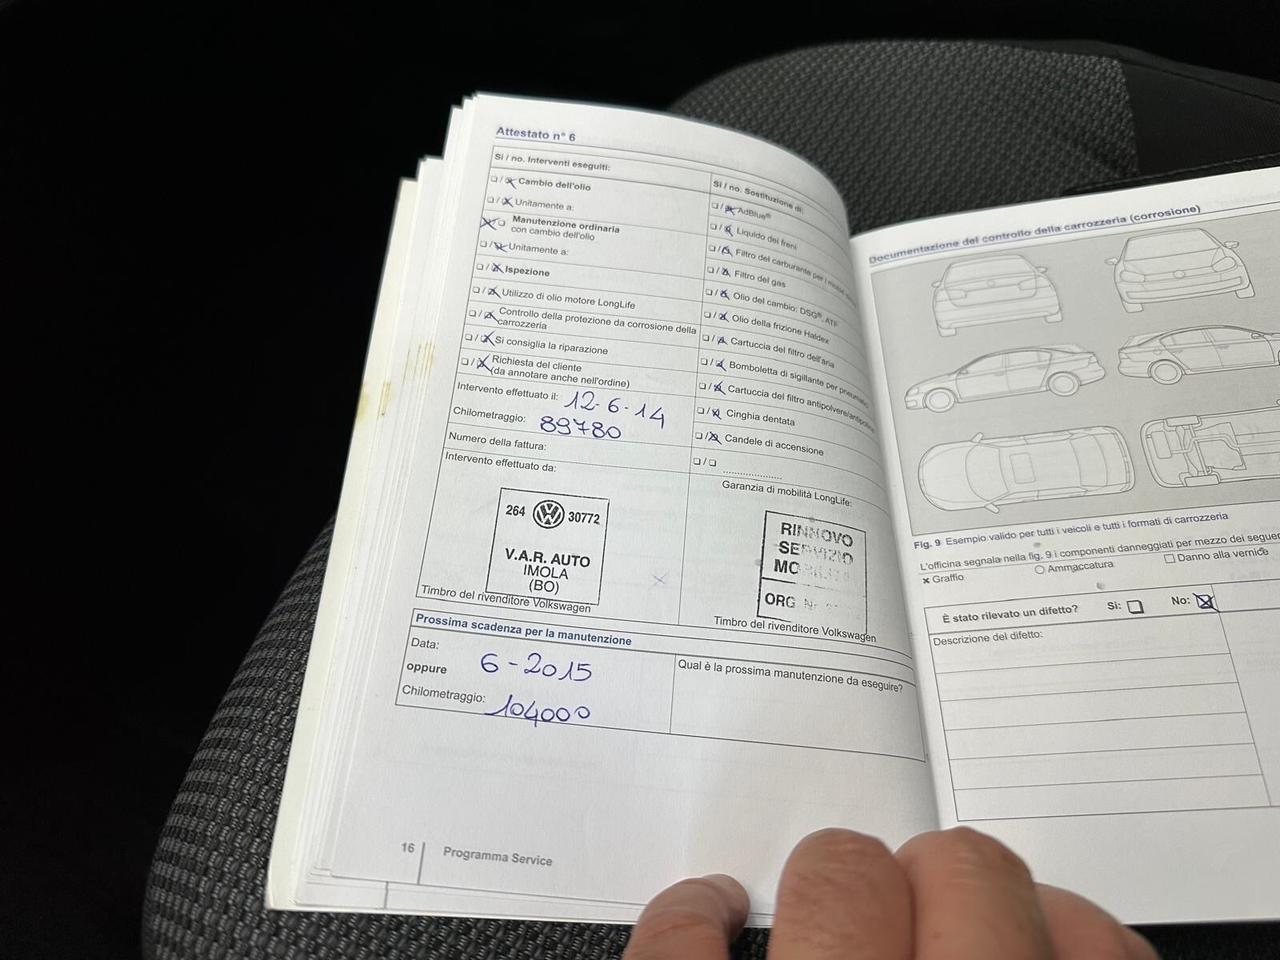 Attestato n° 6
Si / no. Interventi eseguiti:
Cambio dell'olio
Unitamente a:
Manutenzione ordinaria
con cambio dell'olio
Unitamente a:
Ispezione
Utilizzo di olio motore LongLife
Controllo della protezione da corrosione della
carrozzeria
Si consiglia la riparazione
Richiesta del cliente
(da annotare anche nell'ordine)
Intervento effettuato il: 12-6-14
Chilometraggio: 89780
Numero della fattura:
Intervento effettuato da:
264 VW 30772
V.A.R. AUTO
IMOLA
(BO)
Timbro del rivenditore Volkswagen
Si / no. Sostituzione di:
AdBlue®
Liquido dei freni
Filtro del carburante per i motori
Filtro del gas
Olio del cambio: DSG®, ATF
Olio della frizione Haldex
Cartuccia del filtro dell'aria
Bomboletta di sigillante per pneumatici
Cartuccia del filtro antipolvere/antipolline
Cinghia dentata
Candele di accensione
Garanzia di mobilità LongLife:
RINNOVO
SERVIZIO
ORG
Timbro del rivenditore Volkswagen
Prossima scadenza per la manutenzione
Data: 6-2015
oppure
Chilometraggio: 104000
Qual è la prossima manutenzione da eseguire?
16 Programma Service
Documentazione del controllo della carrozzeria (corrosione)
Fig. 9 Esempio valido per tutti i veicoli e tutti i formati di carrozzeria
L'officina segnala nella fig. 9 i componenti danneggiati per mezzo dei
Graffio Ammaccatura Danno alla vernice
È stato rilevato un difetto? Si: No:
Descrizione del difetto: